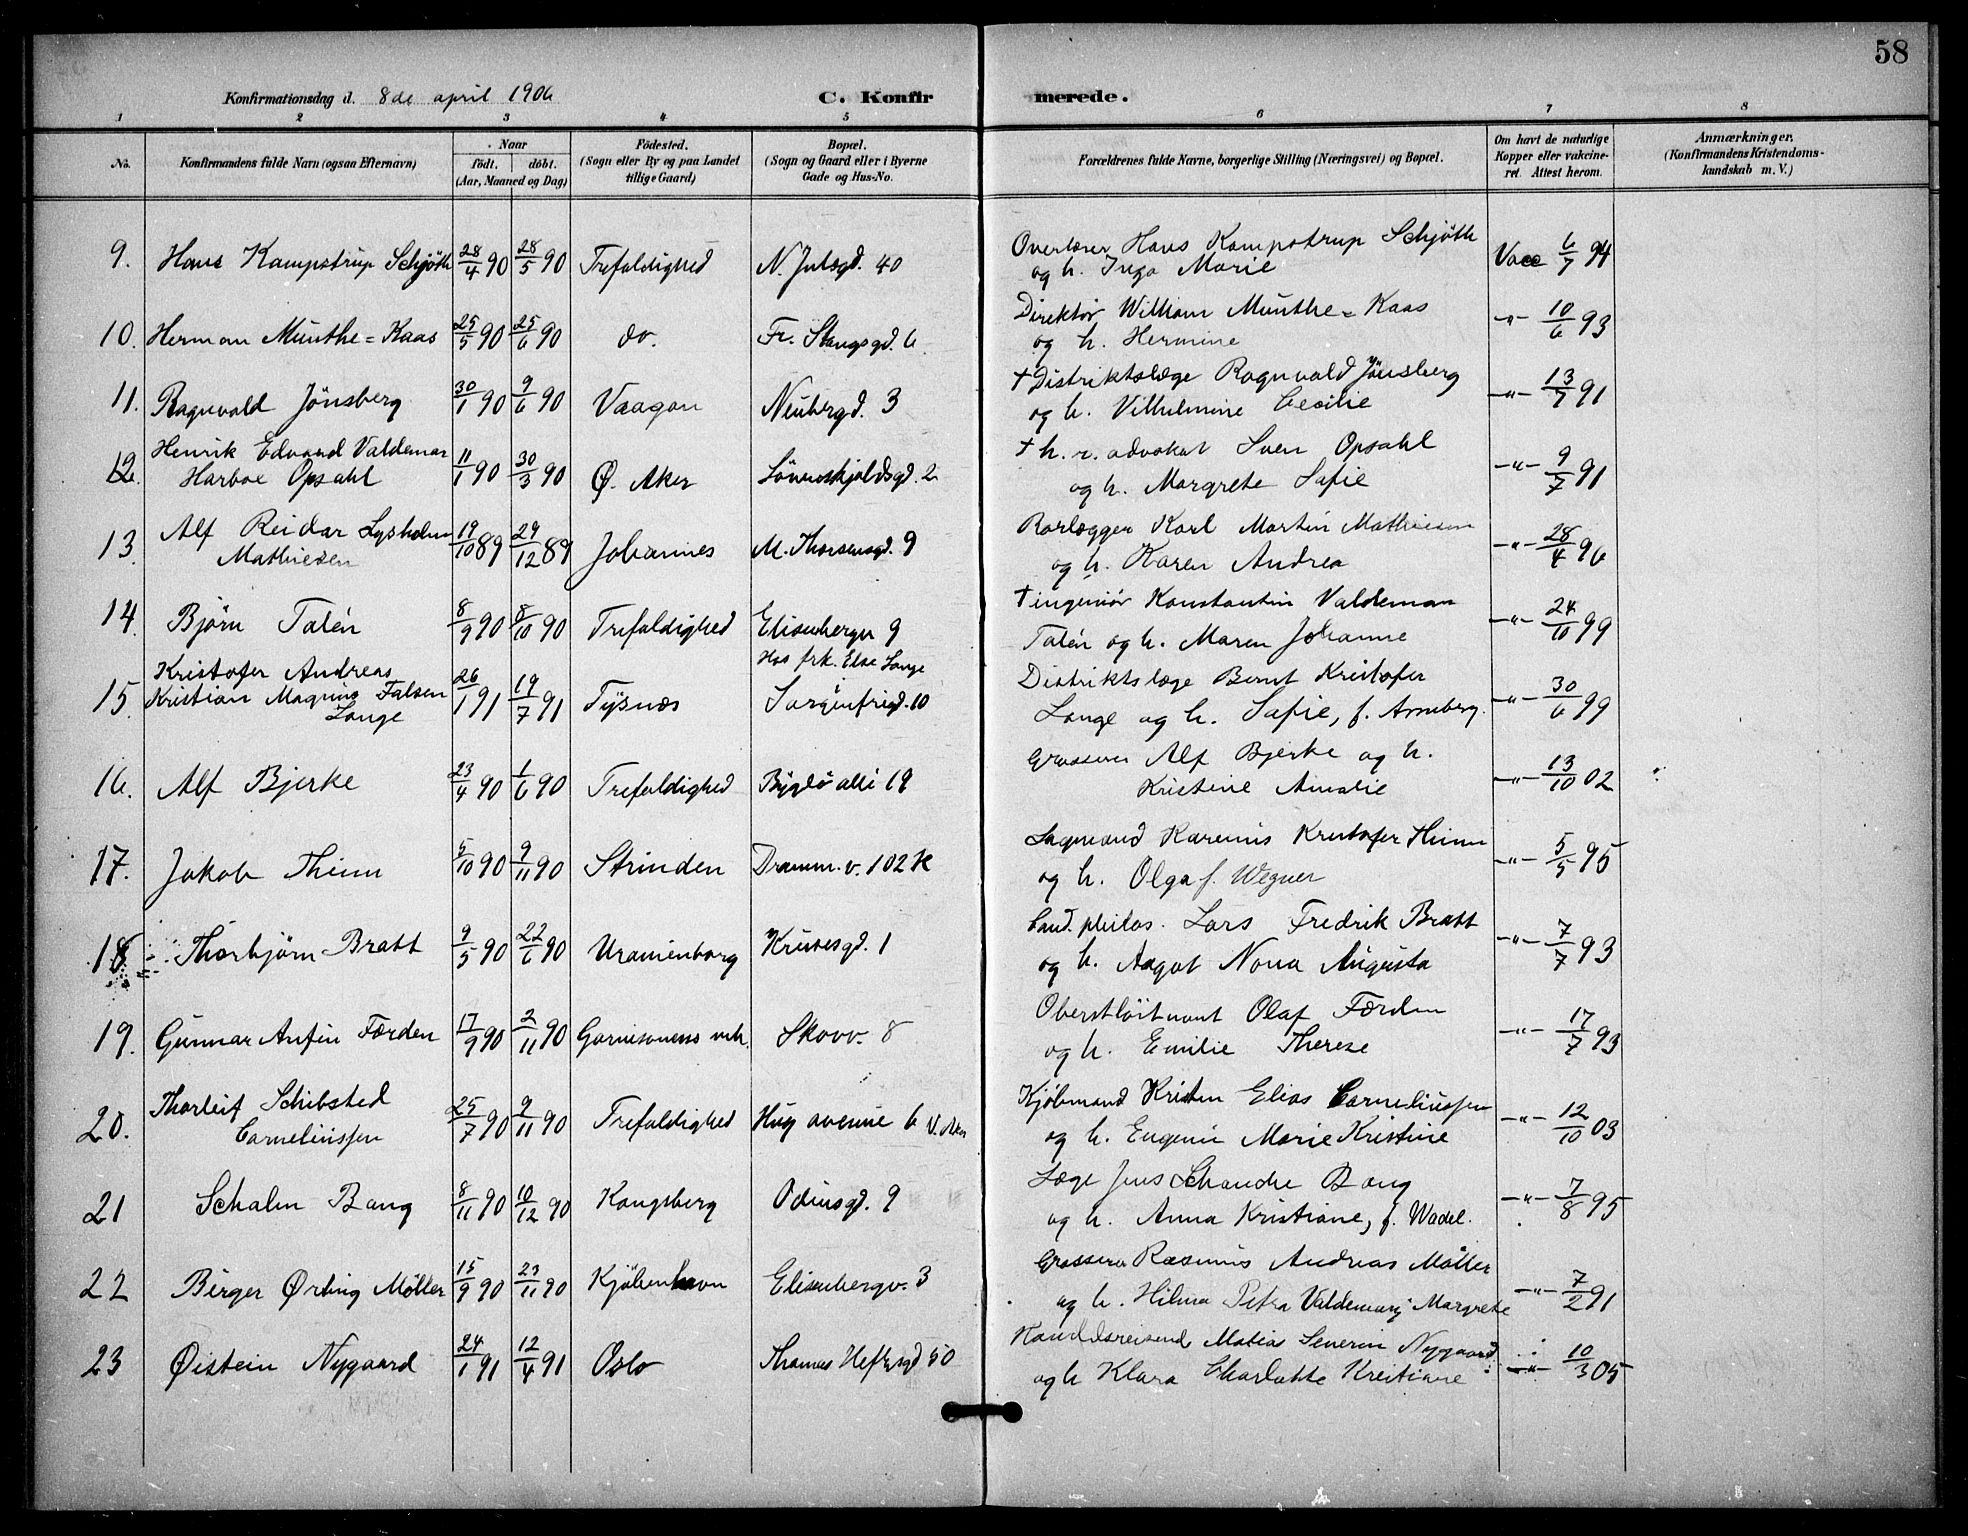 58
Konfirmationsdag d. 8de april 1906 C. Konfirmerede.
1 2 3 4 5 6 7 8
No. Konfirmandens fulde Navn (ogsaa Efternavn) Naar født. døbt. (Aar, Maaned og Dag) Fødested. (Sogn eller By og paa Landet tillige Gaard) Bopæl. (Sogn og Gaard eller i Byerne Gade og Hus-No. Forældrenes fulde Navne, borgerlige Stilling (Næringsvei) og Bopæl. Om havt de naturlige Kopper eller vakcineret. Attest herom. Anmærkninger. (Konfirmandens Kristendomskundskab m. V.)
9. Hans Kampstrup Schjøth 28/4 90 28/5 90 Trefoldighed N. Julsgd. 40 Overlærer Hans Kampstrup Schjøth
og h. Inga Marie Vacc 6/7 94
10. Herman Munthe=Kaas 25/5 90 25/6 90 do. Fr. Stangsgd. 6 Direktør William Munthe=Kaas
og h. Hermine -"- 10/6 93
11. Ragnvald Jønsberg 30/1 90 9/6 90 Vaagan Neubergd. 3 † Distriktslæge Ragnvald Jønsberg
og h. Vilhelmine Cecilie -"- 13/7 91
12. Henrik Edvard Valdemar
Harboe Opsahl 11/1 90 30/3 90 Ø. Aker Løvenskjoldsgd. 2 † h. r. advokat Sven Opsahl
og h. Margrete Sofie -"- 9/7 91
13. Alf Reidar Lysholm
Mathiesen 19/10 89 29/12 89 Johannes M. Thorsensgd. 9 Rørlægger Karl Martin Mathiesen
og h. Karen Andrea -"- 28/4 96
14. Bjørn Talén 8/9 90 8/10 90 Trefoldighed Elisenbergv 9 † ingeniør Konstantin Valdemar
Talén og h. Maren Johanne -"- 24/10 99
15. Kristofer Andreas
Kristian Magnus Falsen
Lange 26/1 91 19/7 91 Tysnæs Hos frk. Else Lange
Sorgenfrigd. 10 Distriktslæge Bernt Kristofer
Lange og h. Sofie, f. Arneberg. -"- 30/6 99
16. Alf Bjerke 23/4 90 1/6 90 Trefoldighed Bygdø alle 19 Grosserer Alf Bjerke og h.
Kristine Amalie -"- 13/10 02
17. Jakob Thinn 5/10 90 9/11 90 Strinden Dramm. v. 102 K Lagmand Karenus Kristofer Thinn
og h. Olga f. Wegner -"- 5/5 95
18 Thorbjørn Bratt 9/5 90 22/6 90 Uranienborg Krusesgd. 1 Cand. philos. Lars Fredrik Bratt
og h. Aagot Nona Augusta -"- 7/7 93
19. Gunnar Anfin Førden 17/9 90 2/11 90 Garnisonens mh. Skovv. 8 Oberstløitnant Olaf Førden
og h. Emilie Therese -"- 17/7 93
20. Thorleif Schibsted
Corneliussen 25/7 90 9/11 90 Trefoldighed Hug avenue 6 V. Aker Kjøbmand Kristen Elias Corneliussen
og h. Eugenie Marie Kristine -"- 12/10 03
21 Schalen Bang 8/11 90 10/12 90 Kongsberg Odinsgd. 9 Læge Jens Schanche Bang
og h. Anna Kristiane, f. Wadel. -"- 7/8 95
22 Birger Ørting Møller 15/9 90 23/11 90 Kjøbenhavn Elisenbergv. 3 Grosserer Rasmus Andreas Møller
og h. Hilma Petra Valdemarj Margrete -"- 7/2 91
23 Øistein Nygaard 24/1 91 12/4 91 Oslo Thomas Heftyesgd 50 Handelsreisende Matias Severin Nygaard
og h Klara Charlotte Kristiane -"- 10/3 05